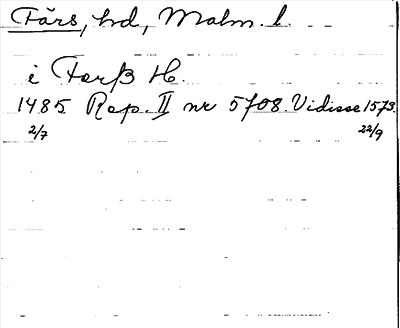 Färs, hd, Malm. l.
i Farß H.
1485 Rep. II nr 5708. Vidisse 1573.
2/7 22/9